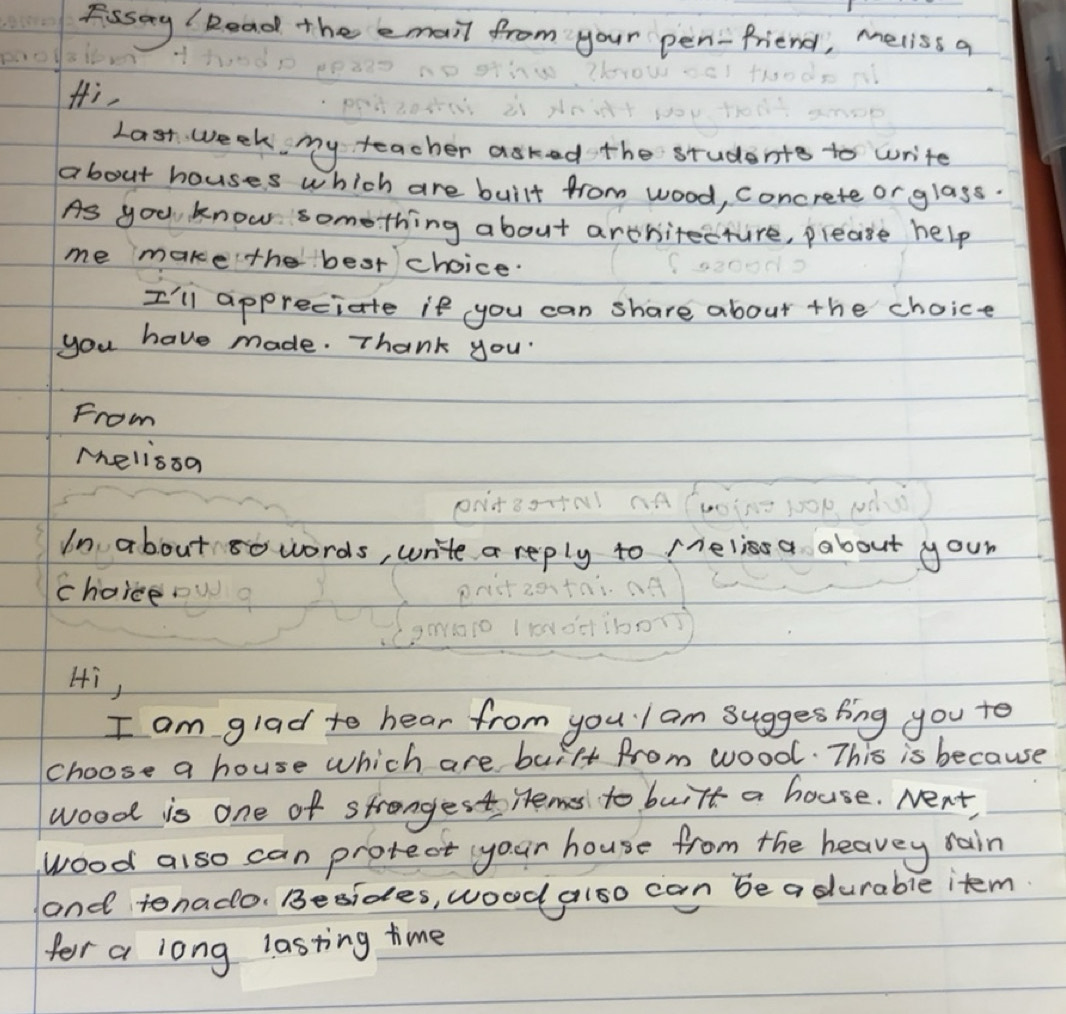 Essay / Read the email from your pen-friend, Melissa
Hi,
Last week, my teacher asked the students to write
about houses which are built from wood, concrete or glass.
As you know something about architecture, please help
me make the best choice.
I'll appreciate if you can share about the choice
you have made. Thank you.
From
Melissa
In about 80 words, write a reply to Melissa about your
choice.
Hi,
I am glad to hear from you. I am suggesting you to
choose a house which are built from wood. This is because
wood is one of strongest items to built a house. Next,
wood also can protect your house from the heavey rain
and tonado. Besides, wood also can be a durable item
for a long lasting time